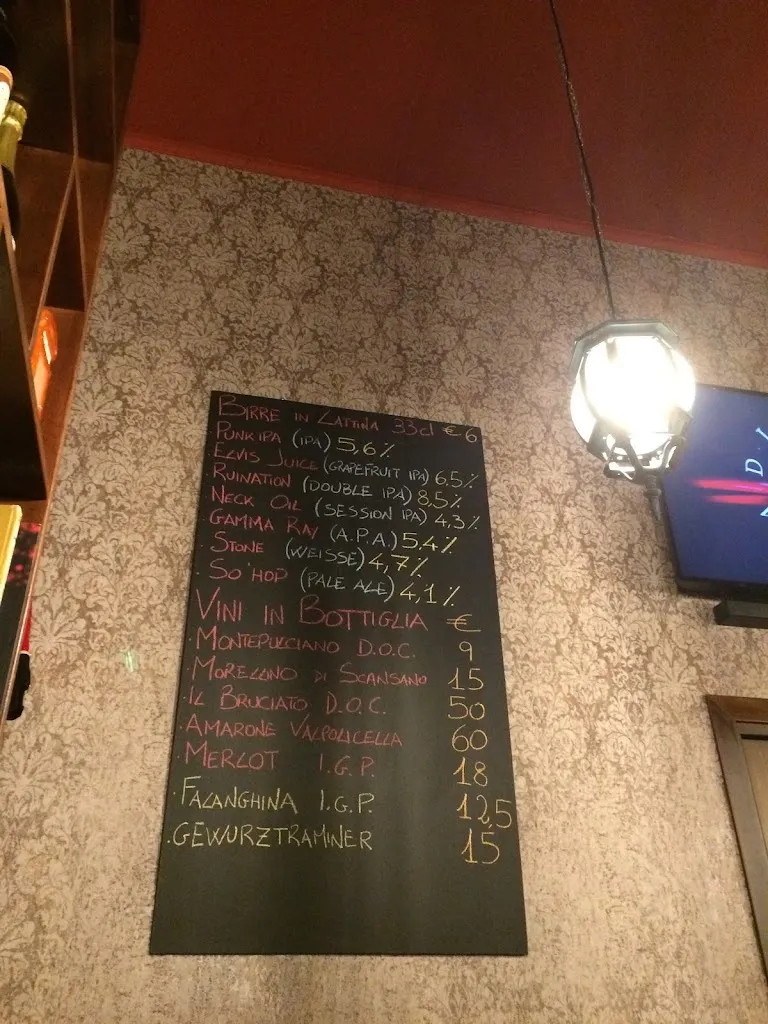 BIRRE IN LATTINA 33cl € 6
PUNKIPA (IPA) 5,6%
ELVIS JUICE (GRAPEFRUIT IPA) 6.5%
RUINATION (DOUBLE IPA) 8,5%
NECK OIL (SESSION IPA) 4,3%
GAMMA RAY (A.P.A.) 5.4%
STONE (WEISSE) 4,7%
SO'HOP (PALE ALE) 4,1%
VINI IN BOTTIGLIA €
MONTEPULCIANO D.O.C. 9
MORELLINO DI SCANSANO 15
IL BRUCIATO D.O.C. 50
AMARONE VALPOLICELLA 60
MERLOT I.G.P. 18
FALANGHINA I.G.P. 12,5
GEWURZTRAMINER 15